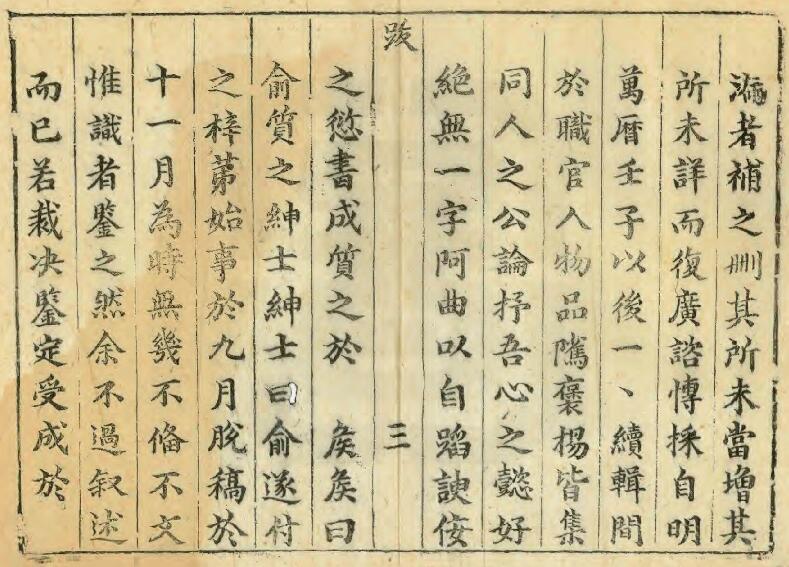 漏者補之刪其所未當增其
所未詳而復廣諮博採自明
萬曆壬子以後一、續輯間
於職官人物品隲褒揚皆集
同人之公論抒吾心之懿好
絕無一字阿曲以自蹈諛佞
跋 三
之愆書成質之於 矦矦曰
俞質之紳士紳士曰俞遂付
之梓苐始事於九月脫稿於
十一月為時無幾不俻不文
惟識者鑒之然余不過叙述
而已若裁决鑒定受成於